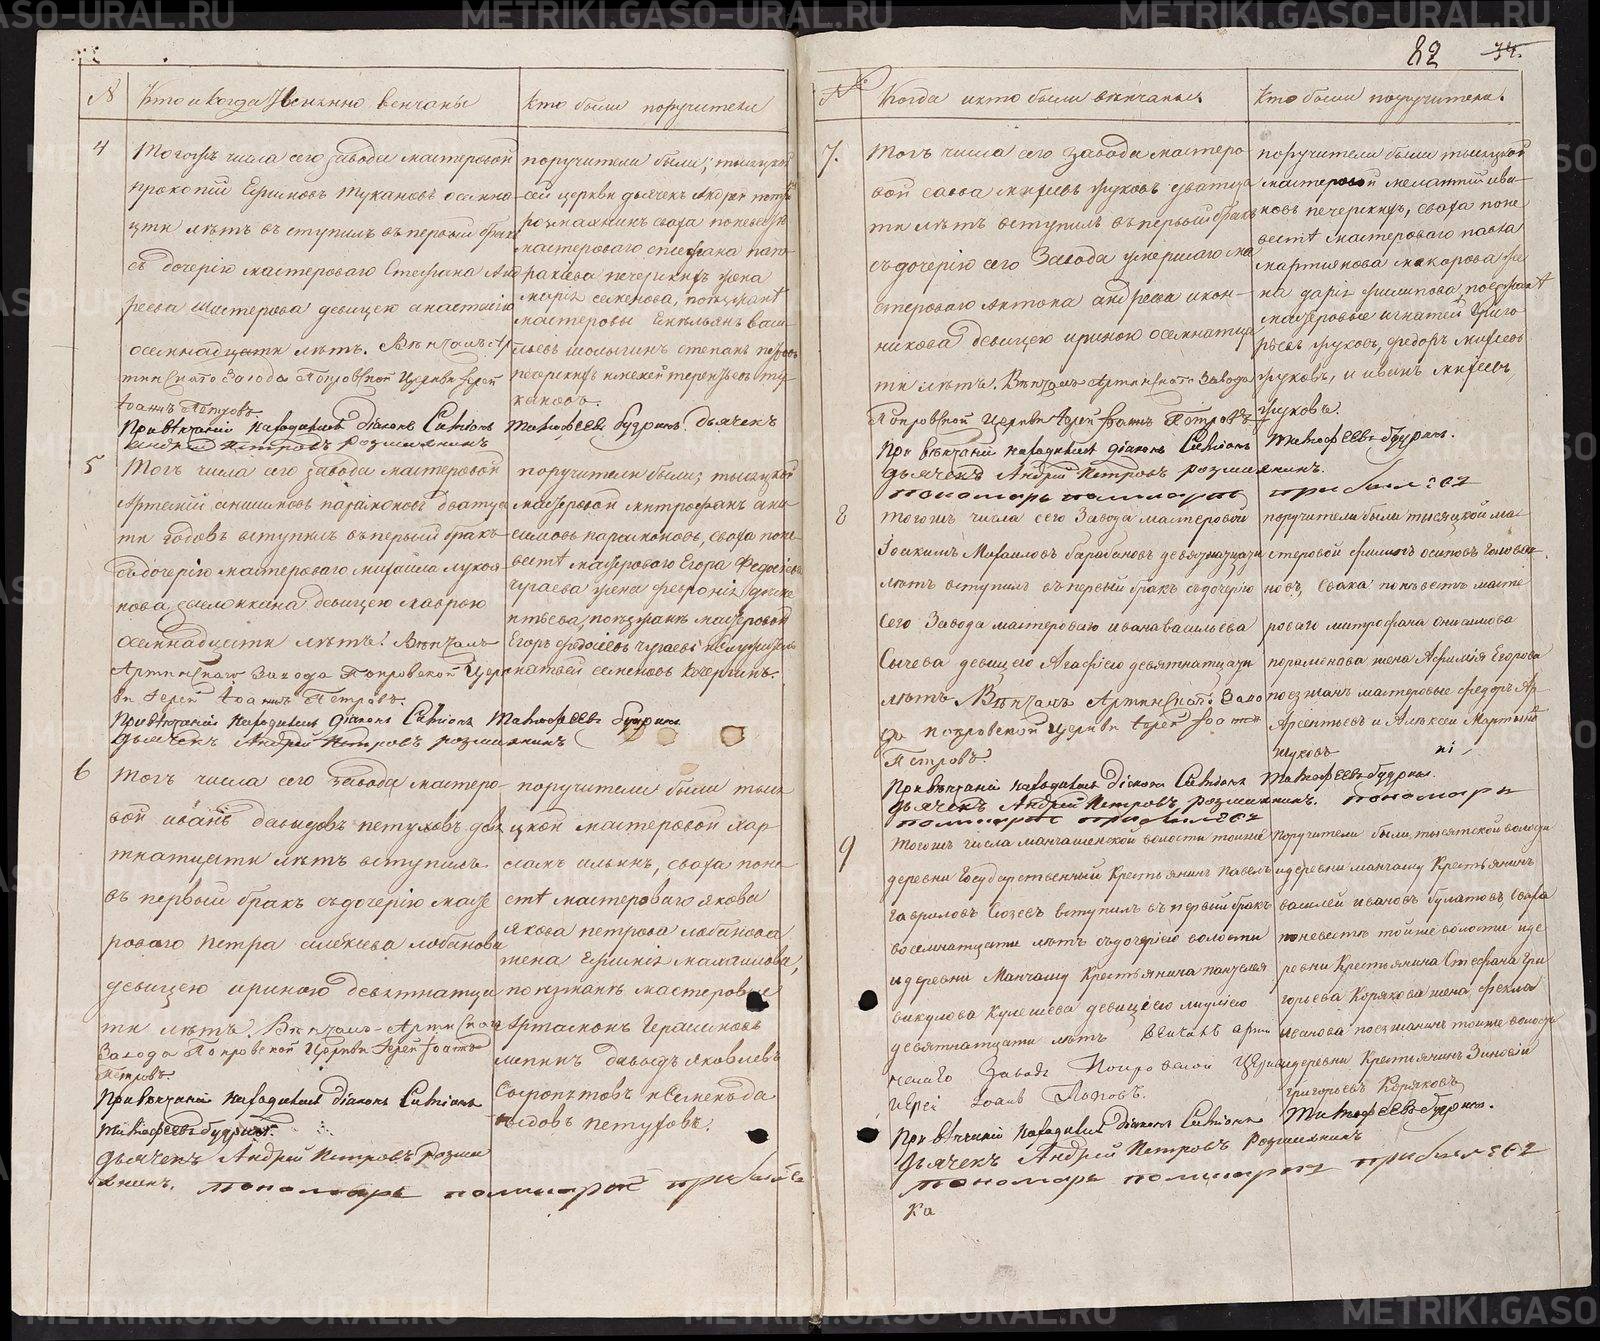 82 34.
№ Кто и когда имянно венчаны Кто были поручители
4 Тогожъ числа сего завода мастеровой
прокопий Ефимовъ тукановъ осмна
цти летъ вступилъ въ первой бракъ
съ дочерию мастероваго Стефана Анд
реева Шастерова девицею анастасию
осемнадцати летъ. Венчалъ Ар
тинскаго Завода Покровской Церкви Иерей
Иоаннъ Петровъ.
При венчании находился диаконъ Симионъ Тимофеевъ Будринъ. Дьячекъ
андрей Петровъ розмахнинъ
поручители были; тысяцкой
сей церкви дьячекъ Андрей петровъ
розмахнинъ сваха поневесте
мастероваго стефана пат
ракиева печеркинъ жена
мария семенова, поезжане
мастеровы Емельянъ васи
льевъ шолыгинъ степанъ петровъ
печеркинъ алексей терентьевъ ту
кановъ.
5 Тогъ числа сего завода мастеровой
Артемий анисимовъ парамоновъ дватца
ти годовъ вступилъ въ первый бракъ
съ дочерию мастероваго михаила лукоя
нова девицею маврою
осемнадцати летъ. Венчалъ
Артинскаго Завода Покровской Церк
ви Иерей Иоаннъ Петровъ.
При венчании находился диаконъ Симионъ Тимофеевъ Будринъ
Дьячекъ Андрей Петровъ розмахнинъ
поручители были; тысяцкой
мастеровой митрофанъ ани
симовъ парамоновъ, сваха поне
весте мастероваго Егора Федосеева
чураева жена феврония
поезжане мастеровой
Егоръ федосеевъ чураевъ
матвей семеновъ кочергинъ.
6 Тогъ числа сего завода мастеро
вой иванъ давыдовъ петуховъ девя
тнатцати летъ вступилъ
въ первый бракъ съ дочерию масте
роваго петра алексеева лобанова
девицею ириною девятнатца
ти летъ. Венчалъ Артинскаго
Завода Покровской Церкви Иерей Иоаннъ
Петровъ.
При венчании находился диаконъ Симионъ
Тимофеевъ Будринъ.
Дьячекъ Андрей Петровъ розма
хнинъ. пономарь
поручители были тыся
цкой мастеровой хар
лампъ ильинъ, сваха поне
есте мастероваго якова
якова петрова лобанова
жена Ефимия максимова,
поезжане мастеровые
Артамонъ Герасимовъ
липинъ давыдъ яковлевъ
Сыропятовъ и Семенъ да
выдовъ петуховъ.
№ Когда икто были венчаны. Кто были поручители.
7. Тогъ числа сего завода мастеро
вой савва михеевъ жуковъ дватца
ти летъ вступилъ въ первый бракъ
съ дочерию сего Завода умершаго ма
стероваго Антона андреева икон
никова девицею ириною осемнатца
ти летъ. Венчалъ Артинскаго Завода
Покровской Церкви Иерей Иоаннъ Петровъ
При венчании находился диаконъ Симионъ Тимофеевъ Будринъ.
Дьячекъ Андрей Петровъ розмахнинъ.
пономарь
поручители были тысяцкой
мастеровой мелантий ива
новъ печеркинъ, сваха поне
весте мастероваго павла
мартиянова макарова же
на дария филипова, поезжане
мастеровые игнатей Григо
рьевъ жуковъ, федоръ михеевъ
жуковъ, и иванъ михеевъ
жуковъ.
8 Тогожъ числа сего Завода мастеровой
Иоакимъ Михаиловъ барабановъ девятнатцати
летъ вступилъ въ первый бракъ съ дочерию
сего Завода мастероваго ивана васильева
Сычева девицею Агафиею девятнатцати
летъ. Венчалъ Артинскаго Заво
да покровской Церкви Иерей Иоаннъ
Петровъ.
При венчании находился диаконъ Симионъ Тимофеевъ Будринъ.
Дьячекъ Андрей Петровъ розмахнинъ. пономарь
поручители были тысяцкой ма
стеровой филипъ осиповъ Голован
новъ, Сваха поневесте масте
роваго митрофана онисимова
парамонова жена Афимия Егорова
поезжане мастеровые федоръ
Арсентьевъ и Алексеи Мартыновъ
жуковъ
9 Тогожъ числа манчажской волости тойже
деревни Государственный Крестьянинъ Павелъ
Гавриловъ Сюзевъ вступилъ въ первый бракъ
восемнатцати летъ съ дочерию волости
и деревни Манчажу Крестьянина пантелея
викулова Кулешева девицею
девятнатцати летъ венчалъ арти
нскаго Завода Покровской Церкви
иерей иоанъ Поповъ.
При венчании находился диаконъ Симионъ Тимофеевъ Будринъ.
Дьячекъ Андрей Петровъ розмахнинъ
пономарь
ка
Поручители были, тысятской волости
и деревни манчажу Крестьянинъ
василей ивановъ булатовъ, сваха
поневесте тойже волости иде
ревни Крестьянина Стефана Гри
горьева Корякова жена фекла
иванова поезжанинъ тойже волости
и деревни Крестьянинъ Зиновий
григорьевъ Коряковъ
METRIKI.GASO-URAL.RU